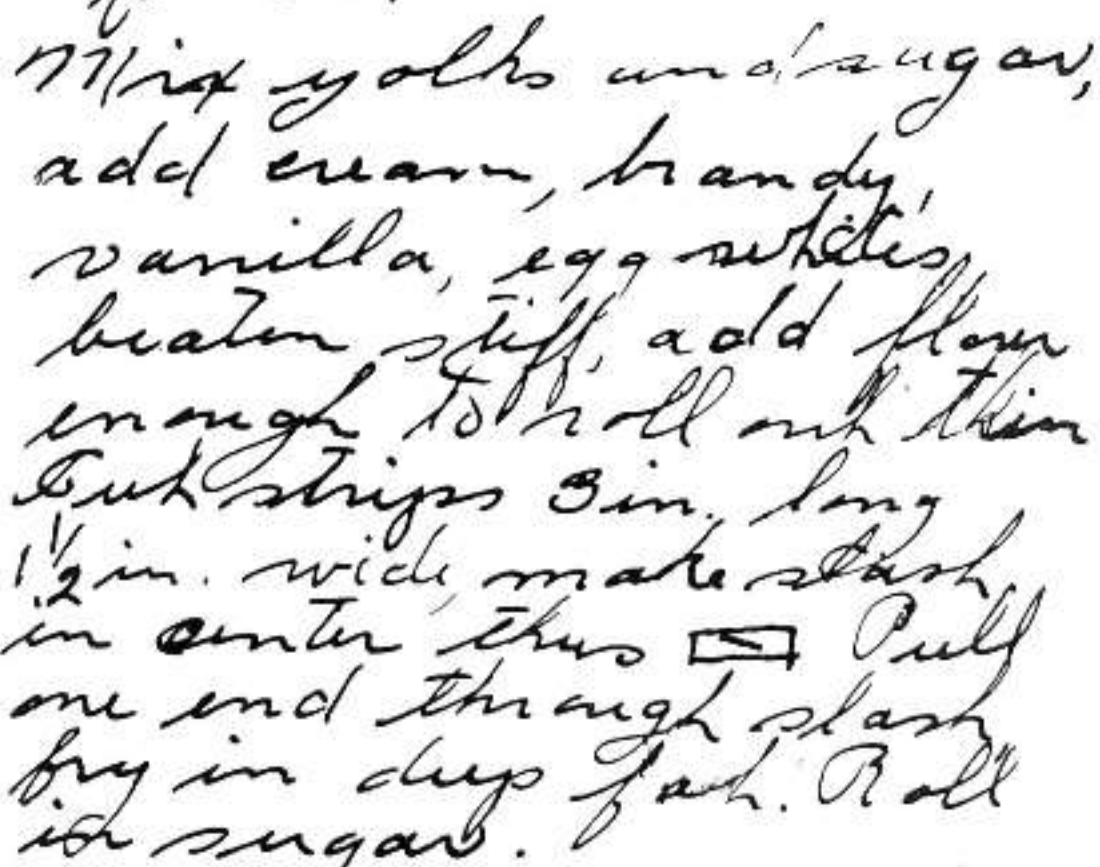 Mix yolks and sugar,
add cream, brandy,
vanilla, egg whites
beaten stiff, add flour
enough to roll out thin
Cut strips 3 in. long
1 1/2 in. wide, make slash
in center thus Pull
one end through slash
fry in deep fat. Roll
in sugar.